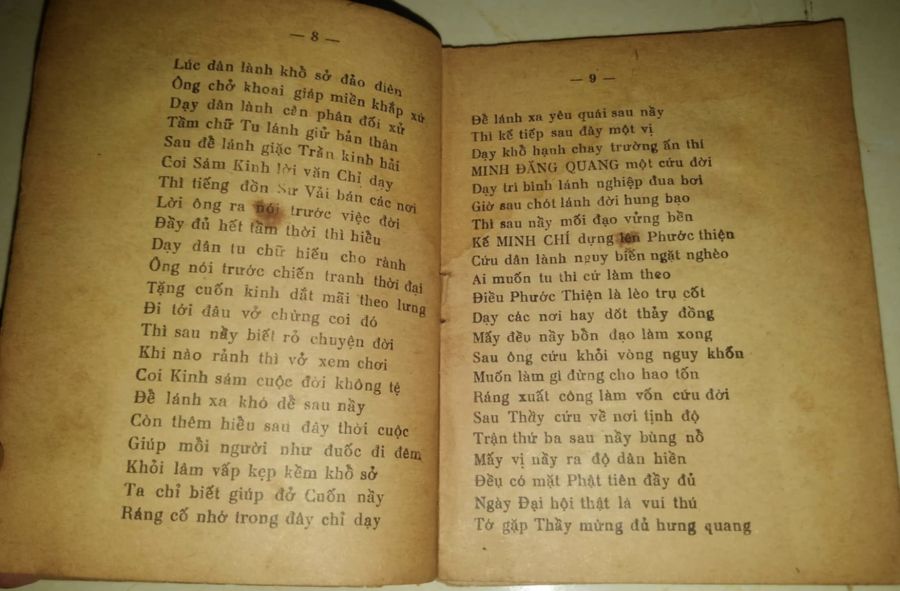 — 8 —
Lúc dân lành khổ sở đảo điên
Ông chở khoai giáp miền khắp xứ
Dạy dân lành cên phân đối xử
Tầm chữ Tu lánh giử bản thân
Sau để lánh giặc Trần kinh hải
Coi Sám Kinh lời văn Chỉ dạy
Thì tiếng đồn Sư Vải bán các nơi
Lời ông ra nói trước việc đời
Đầy đủ hết tầm thời thì hiểu
Dạy dân tu chữ hiếu cho rành
Ông nói trước chiến tranh thời đại
Tặng cuốn kinh dắt mãi theo lưng
Đi tới đâu vở chừng coi đó
Thì sau nầy biết rỏ chuyện đời
Khi nào rảnh thì vở xem chơi
Coi Kinh sám cuộc đời không tệ
Đề lánh xa khó dể sau nầy
Còn thêm hiểu sau đây thời cuộc
Giúp mỗi người như đuốc đi đêm
Khỏi lâm vấp kẹp kềm khổ sở
Ta chỉ biết giúp đở Cuốn nầy
Ráng cố nhớ trong đây chỉ dạy
— 9 —
Đề lánh xa yêu quái sau nầy
Thì kế tiếp sau đây một vị
Dạy khổ hạnh chay trường ấn thí
MINH ĐĂNG QUANG một cứu đời
Dạy trì bình lánh nghiệp đua bơi
Giờ sau chót lánh đời hung bạo
Thì sau nầy mối đạo vửng bền
Kế MINH CHÍ dựng lên Phước thiện
Cứu dân lành nguy biến ngặt nghèo
Ai muốn tu thì cứ làm theo
Điều Phước Thiện là lèo trụ cốt
Dạy các nơi hay dốt thảy đồng
Mấy đều nầy bồn đạo làm xong
Sau ông cứu khỏi vòng nguy khốn
Muốn làm gì đừng cho hao tốn
Ráng xuất công làm vốn cứu đời
Sau Thầy cứu về nơi tịnh độ
Trận thứ ba sau nầy bùng nổ
Mấy vị nầy ra độ dân hiền
Đều có mặt Phật tiên đầy đủ
Ngày Đại hội thật là vui thú
Tớ gặp Thầy mừng đủ hưng quang